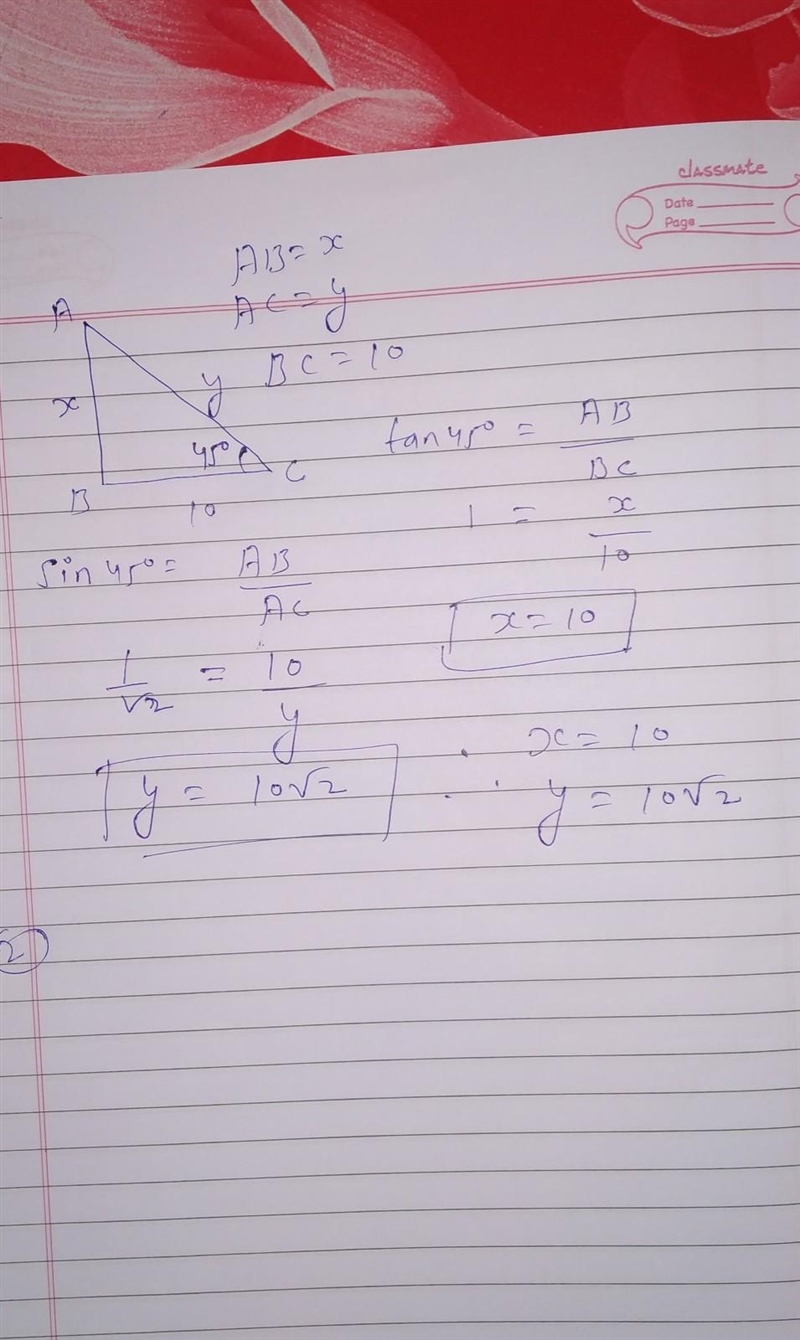 classmate
Date
Page
AB = x
AC = y
BC = 10
A
x
y
45°
B
C
10
tan 45° = AB
BC
1 = x
10
x = 10
sin 45° = AB
AC
1 = 10
√2 y
y = 10√2
∴ x = 10
y = 10√2
2